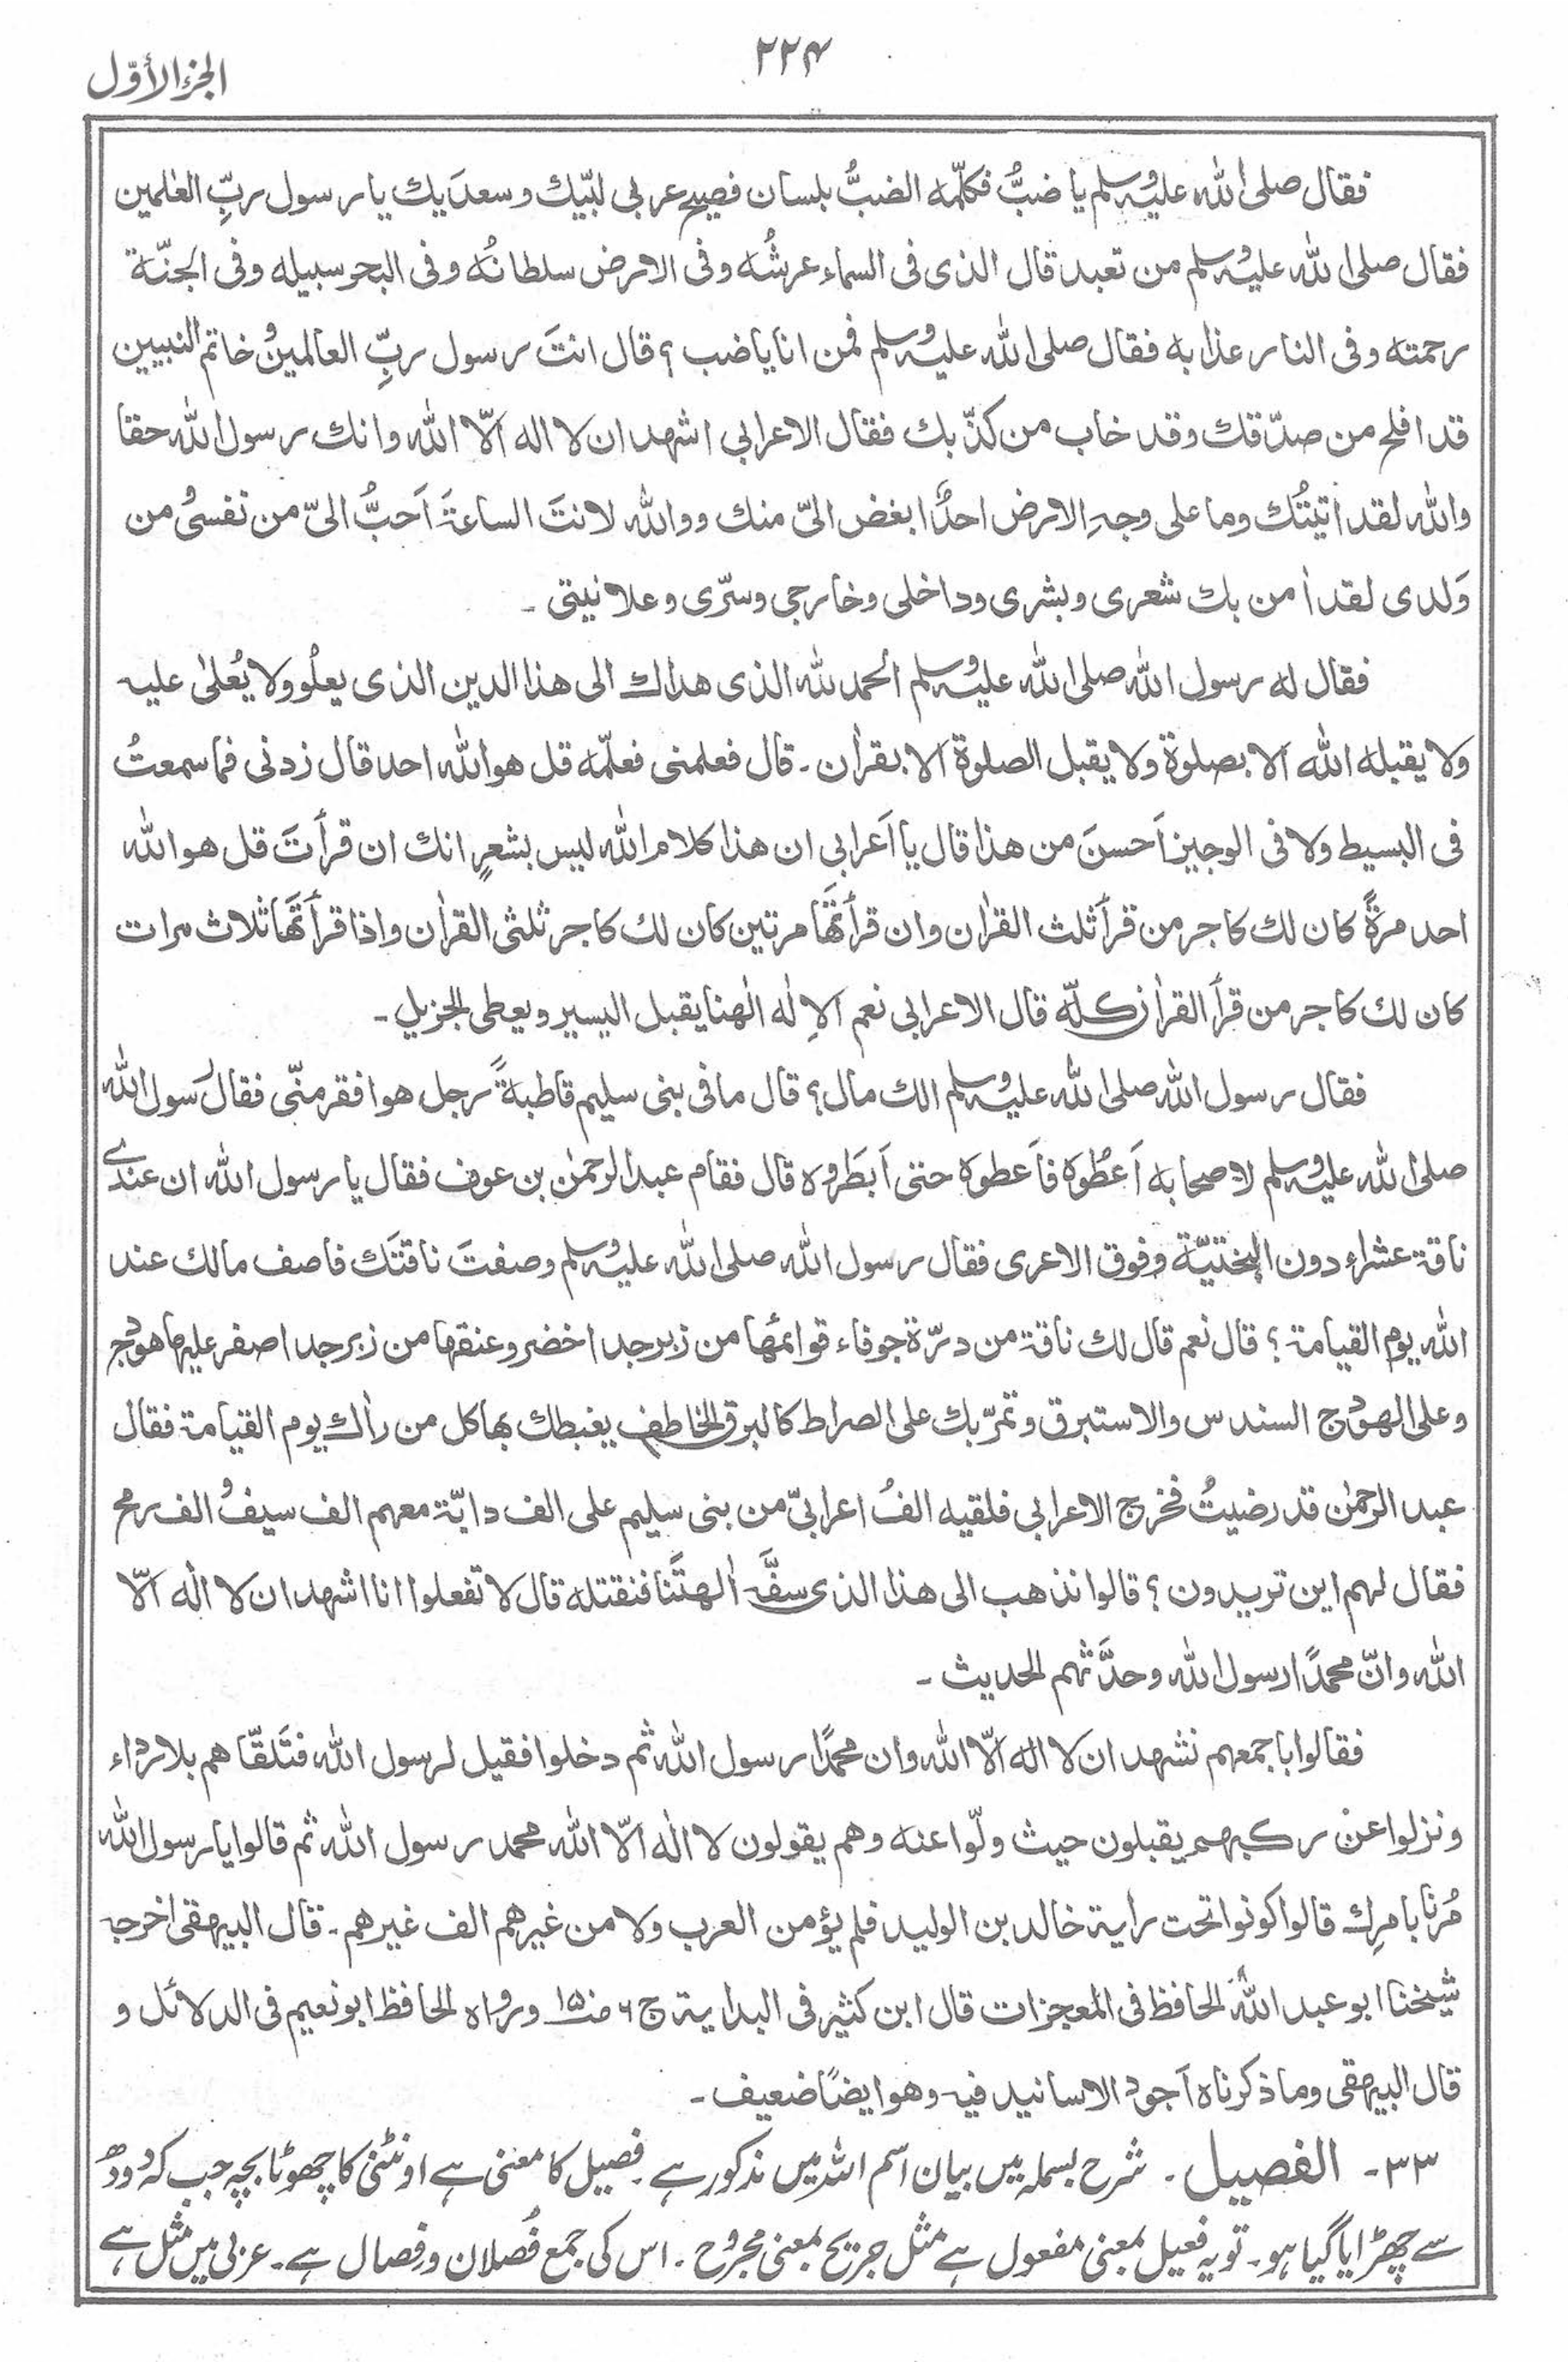 ۲۲۴
الجزء الأوّل
فقال صلى الله عليه وسلم يا ضبُّ فكلّمه الضبُّ بلسان فصيح عربى لبّيك وسعدَيك يا رسول ربِّ العٰلمين
فقال صلى الله عليه وسلم من تعبد قال الذى فى السماء عرشُه وفى الارض سلطانُه وفى البحر سبيله وفى الجنّة
رحمته وفى النار عذابه فقال صلى الله عليه وسلم فمن انا يا ضب؟ قال انتَ رسول ربِّ العالمين وخاتم النبيين
قد افلح من صدّقك وقد خاب من كذّبك فقال الاعرابى اشهد ان لا اله الّا الله وانك رسول الله حقا
والله لقد اتيتُك وما على وجهِ الارض احدٌ ابغض الىّ منك ووالله لانتَ الساعةَ اَحبُّ الىّ من نفسى ومن
وَلدى لقد اٰمن بك شعرى وبشرى وداخلى وخارجى وسرّى وعلانيتى۔
فقال له رسول الله صلى الله عليه وسلم الحمد لله الذى هداك الى هذا الدين الذى يعلُو ولا يُعلىٰ عليه
ولا يقبله الله الا بصلوة ولا يقبل الصلوة الا بقراٰن۔ قال فعلمنى فعلّمه قل هو الله احد قال زدنى فما سمعتُ
فى البسيط ولا فى الوجيز اَحسنَ من هذا قال يا اَعرابى ان هذا كلام الله ليس بشعرٍ انك ان قرأتَ قل هو الله
احد مرةً كان لك كاجر من قرأ ثلث القراٰن وان قرأتَها مرتين كان لك كاجر ثلثى القراٰن واذا قرأتَها ثلاث مرات
كان لك كاجر من قرأ القراٰن كلّه قال الاعرابى نعم الاِلٰه الٰهنا يقبل اليسير ويعطى الجزيل۔
فقال رسول الله صلى الله عليه وسلم الك مال؟ قال ما فى بنى سليم قاطبةً رجل هو افقر منّى فقال رسول الله
صلى الله عليه وسلم لاصحابه اَعطُوه فاَعطوه حتى اَبطَروه قال فقام عبد الرحمٰن بن عوف فقال يا رسول الله ان عندى
ناقة عشراء دون البختيّة وفوق الاعرى فقال رسول الله صلى الله عليه وسلم وصفتَ ناقتَك فاصف مالك عند
الله يوم القيامة؟ قال نعم قال لك ناقة من درّة جوفاء قوائمُها من زبرجد اخضر وعنقها من زبرجد اصفر عليها هودج
وعلى الهودج السندس والاستبرق وتمرّ بك على الصراط كالبرق الخاطف يغبطك بها كل من راٰك يوم القيامة فقال
عبد الرحمٰن قد رضيتُ فخرج الاعرابى فلقيه الفُ اعرابىّ من بنى سليم على الف دابّة معهم الف سيف والف رمح
فقال لهم اين تريدون؟ قالوا نذهب الى هذا الذى سفَّه اٰلهتَنا فنقتله قال لا تفعلوا انا اشهد ان لا الٰه الّا
الله وانّ محمدًا رسول الله وحدَّثهم الحديث۔
فقالوا باجمعهم نشهد ان لا اله الّا الله وان محمدًا رسول الله ثم دخلوا فقيل لرسول الله فتَلقّاهم بلا رداء
ونزلوا عن ركبهم يقبلون حيث ولّوا عنه وهم يقولون لا الٰه الّا الله محمد رسول الله ثم قالوا يا رسول الله
مُرنا بامرِك قالوا كونوا تحت راية خالد بن الوليد فلم يؤمن العرب ولا من غيرهم الف غيرهم۔ قال البيهقى اخرجه
شيخنا ابو عبد الله الحافظ فى المعجزات قال ابن كثير فى البداية ج ٦ ص١٥٠ ورواه الحافظ ابو نعيم فى الدلائل و
قال البيهقى وما ذكرناه اَجود الاسانيد فيه وهو ايضًا ضعيف۔
۳۳۔ الفصیل۔ شرح بسملہ میں بیان اسم اللہ میں مذکور ہے۔ فصیل کا معنی ہے اونٹنی کا چھوٹا بچہ جب کہ دودھ
سے چھڑایا گیا ہو۔ تو یہ فعیل بمعنی مفعول ہے مثل جریح بمعنی مجروح۔ اس کی جمع فُصلان و فِصال ہے۔ عربی میں مثل ہے